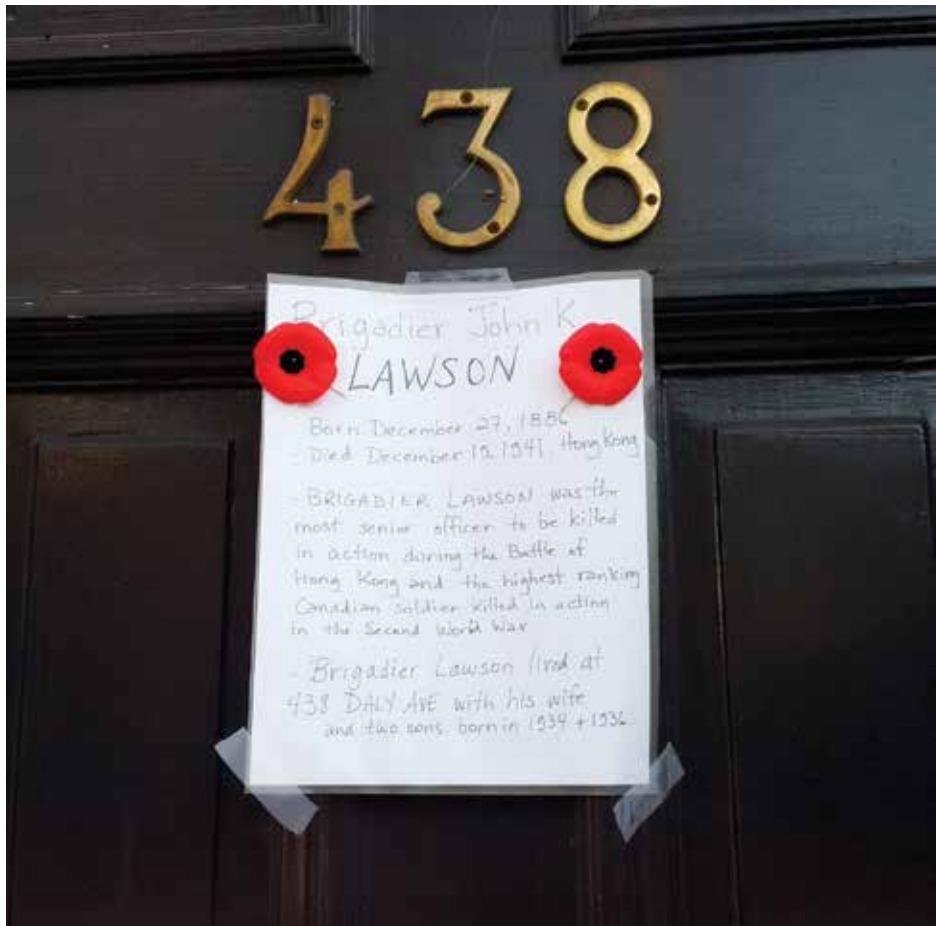 438
Brigadier John K
LAWSON
- Born December 27, 1886
- Died December 19, 1941, Hong Kong
- BRIGADIER LAWSON was the
most senior officer to be killed
in action during the Battle of
Hong Kong and the highest ranking
Canadian soldier killed in action
in the Second World War
- Brigadier Lawson lived at
438 DALY AVE with his wife
and two sons born in 1934 + 1936